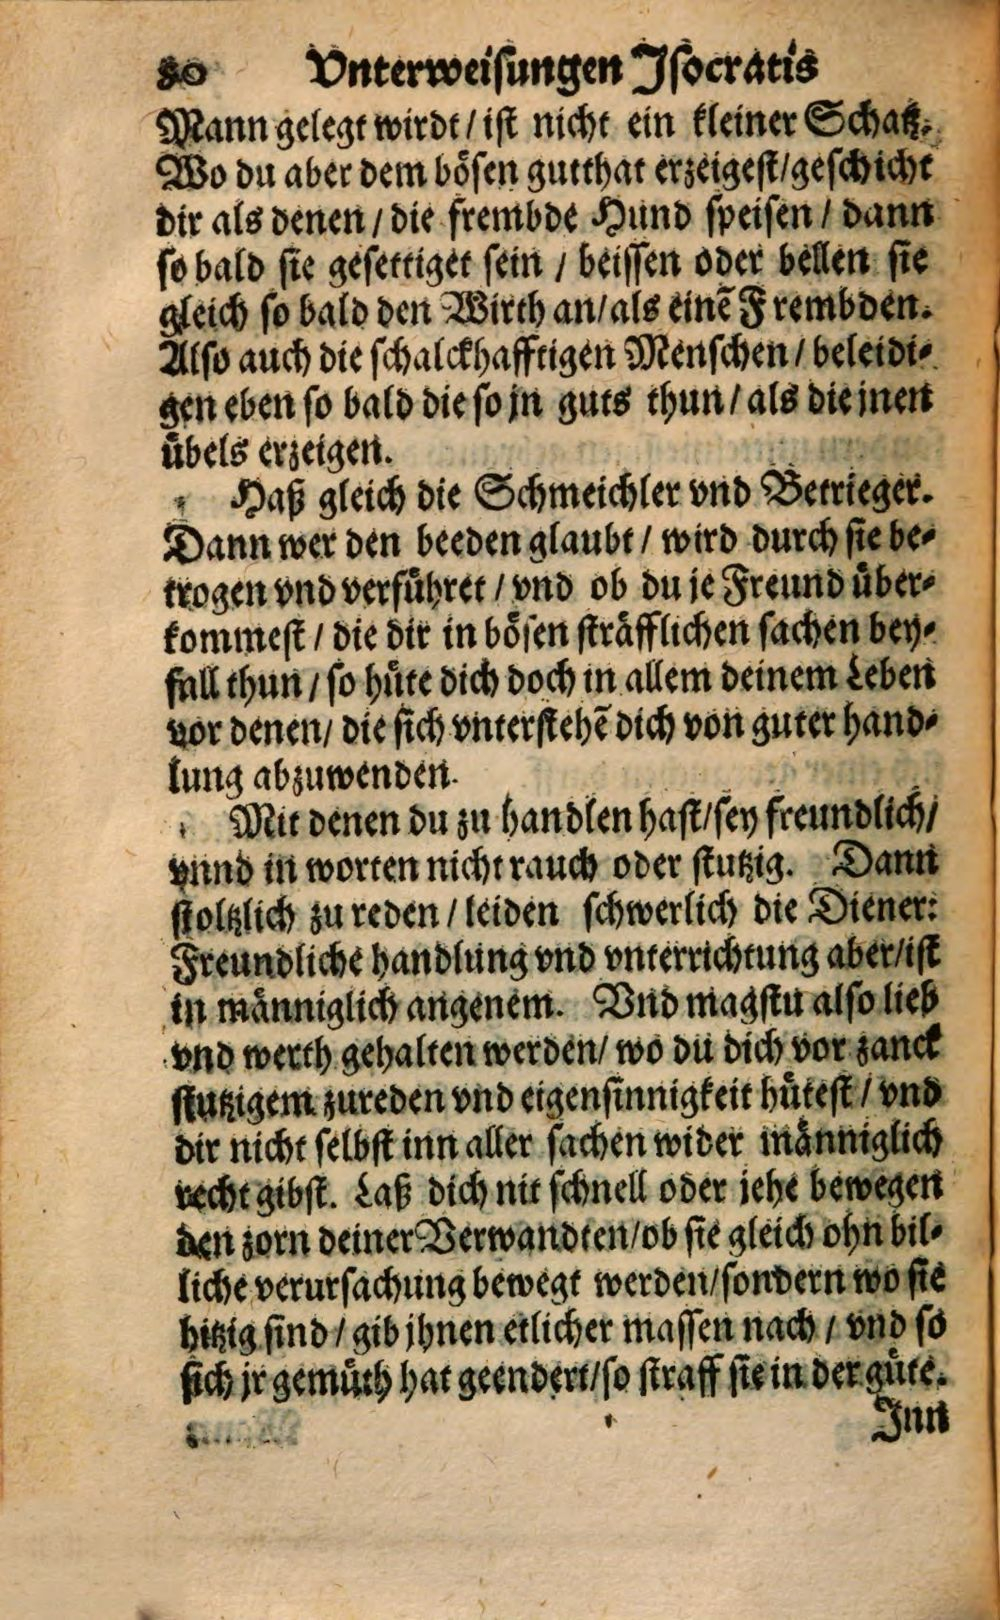 80 Vnterweisungen Jsocratis
Mann gelegt wirdt / ist nicht ein kleiner Schatz.
Wo du aber dem bösen gutthat erzeigest / geschicht
dir als denen / die frembde Hund speisen / dann
so bald sie gesettiget sein / beissen oder bellen sie
gleich so bald den Wirth an / als einē Frembden.
Also auch die schalckhafftigen Menschen / beleidi-
gen eben so bald die so jn guts thun / als die jnen
übels erzeigen.
Haß gleich die Schmeichler vnd Betrieger.
Dann wer den beeden glaubt / wird durch sie be-
trogen vnd verführet / vnd ob du je Freund über-
kommest / die dir in bösen sträfflichen sachen bey-
fall thun / so hüte dich doch in allem deinem Leben
vor denen / die sich vnterstehē dich von guter hand-
lung abzuwenden.
Mit denen du zu handlen hast / sey freundlich /
vnnd in worten nicht rauch oder stutzig. Dann
stoltzlich zu reden / leiden schwerlich die Diener:
Freundliche handlung vnd vnterrichtung aber / ist
in männiglich angenem. Vnd magstu also lieb
vnd werth gehalten werden / wo du dich vor zanck
stutzigem zureden vnd eigensinnigkeit hütest / vnd
dir nicht selbst inn aller sachen wider männiglich
recht gibst. Laß dich nit schnell oder jehe bewegen
den zorn deiner Verwandten / ob sie gleich ohn bil-
liche verursachung bewegt werden / sondern wo sie
hitzig sind / gib jhnen etlicher massen nach / vnd so
sich jr gemüth hat geendert / so straff sie in der güte.
Inn